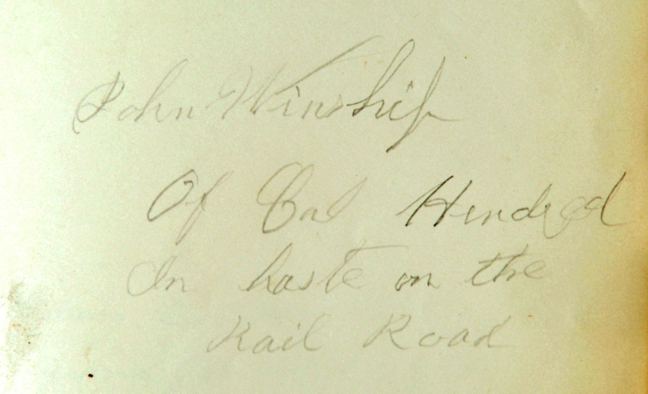 John Winship
Of Cal Hundred
In haste on the
Rail Road